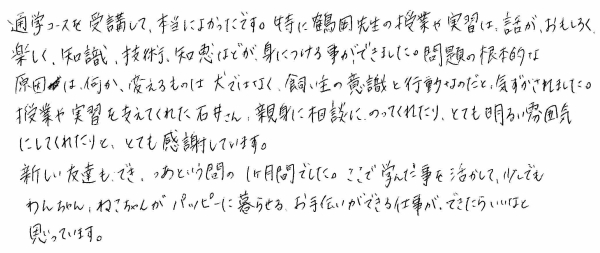 通学コースを受講して、本当によかったです。特に鶴岡先生の授業や実習は、話が、おもしろく、
楽しく、知識、技術、知恵などが身につける事ができました。問題の根本的な
原因は、何か、変えるものは犬ではなく、飼い主の意識と行動なのだと、気ずかされました。
授業や実習を支えてくれた石井さん、親身に相談に、のってくれたり、とても明るい雰囲気
にしてくれたりと、とても感謝しています。
新しい友達も、でき、あっという間の1ヶ月間でした。ここで学んだ事を活かして、少しでも
わんちゃん、ねこちゃんがハッピーに暮らせる、お手伝いができる仕事が、できたらいいなと
思っています。